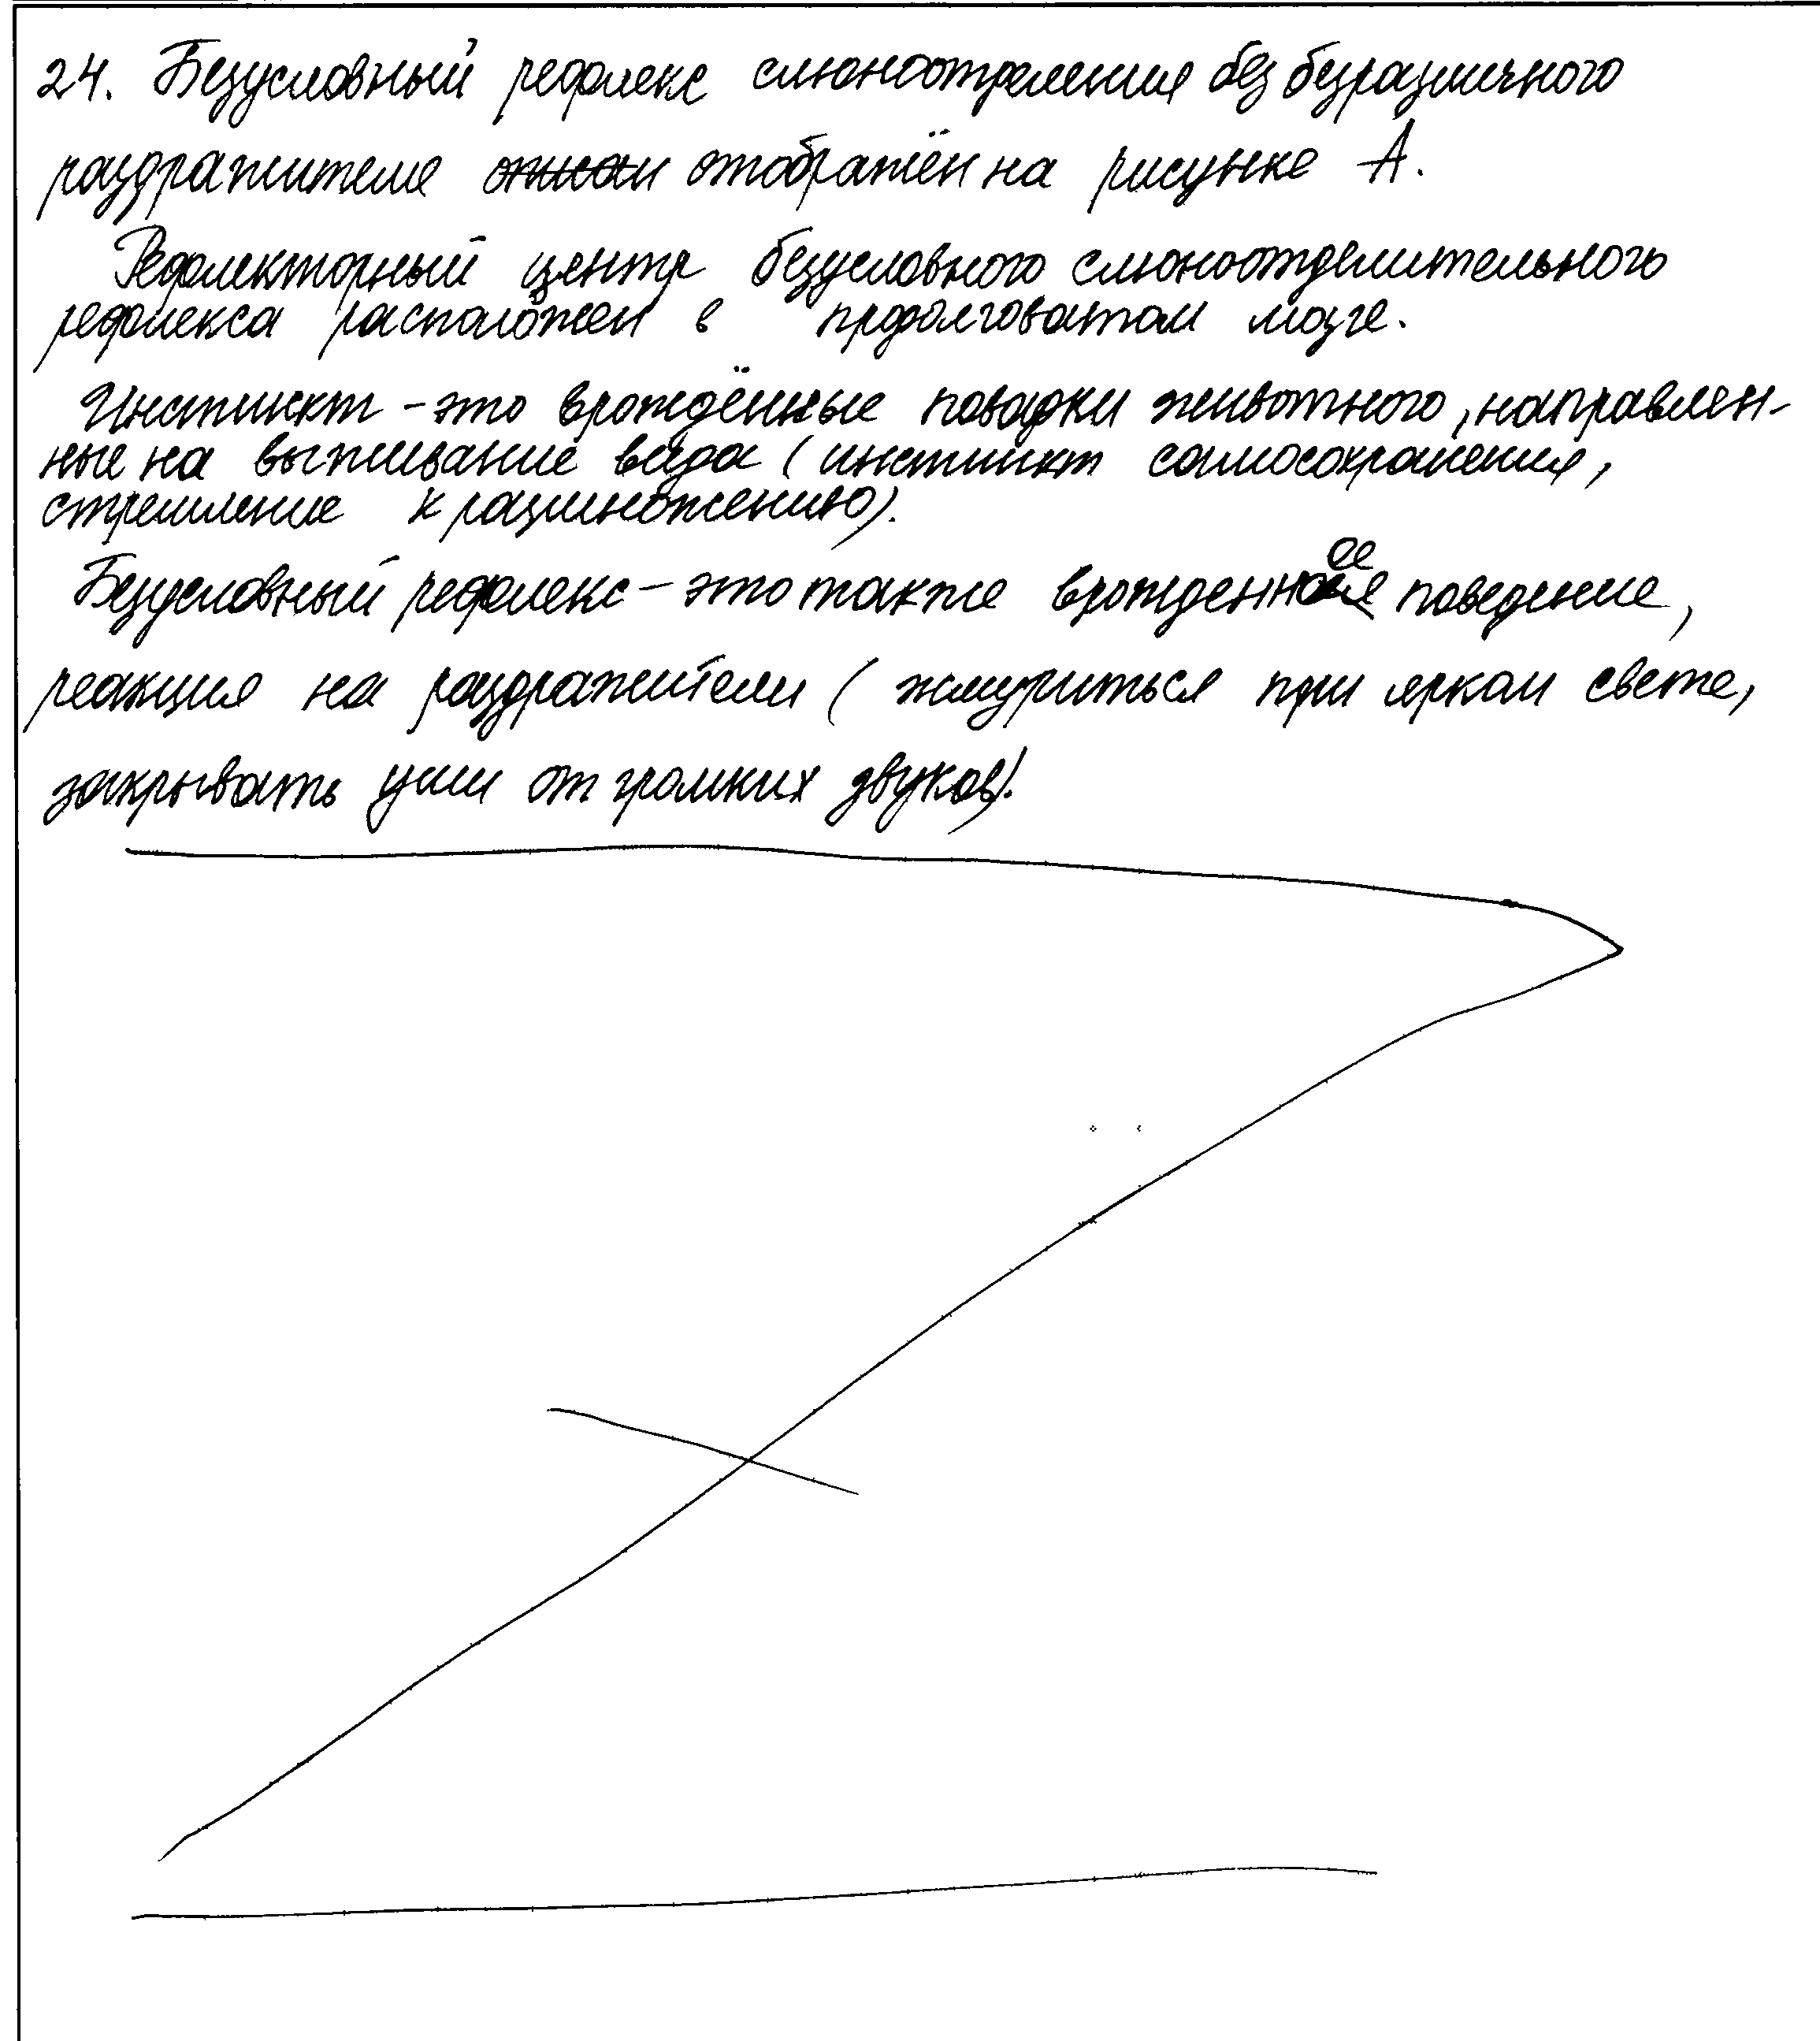 24. Безусловный рефлекс слюноотделения без безразличного
раздражителя отображён на рисунке А.
Рефлекторный центр безусловного слюноотделительного
рефлекса расположен в продолговатом мозге.
Инстинкт - это врождённые повадки животного, направлен-
ные на выживание вида (инстинкт самосохранения,
стремление к размножению).
Безусловный рефлекс - это также врожденное поведение,
реакция на раздражители (жмуриться при ярком свете,
закрывать уши от громких звуков).